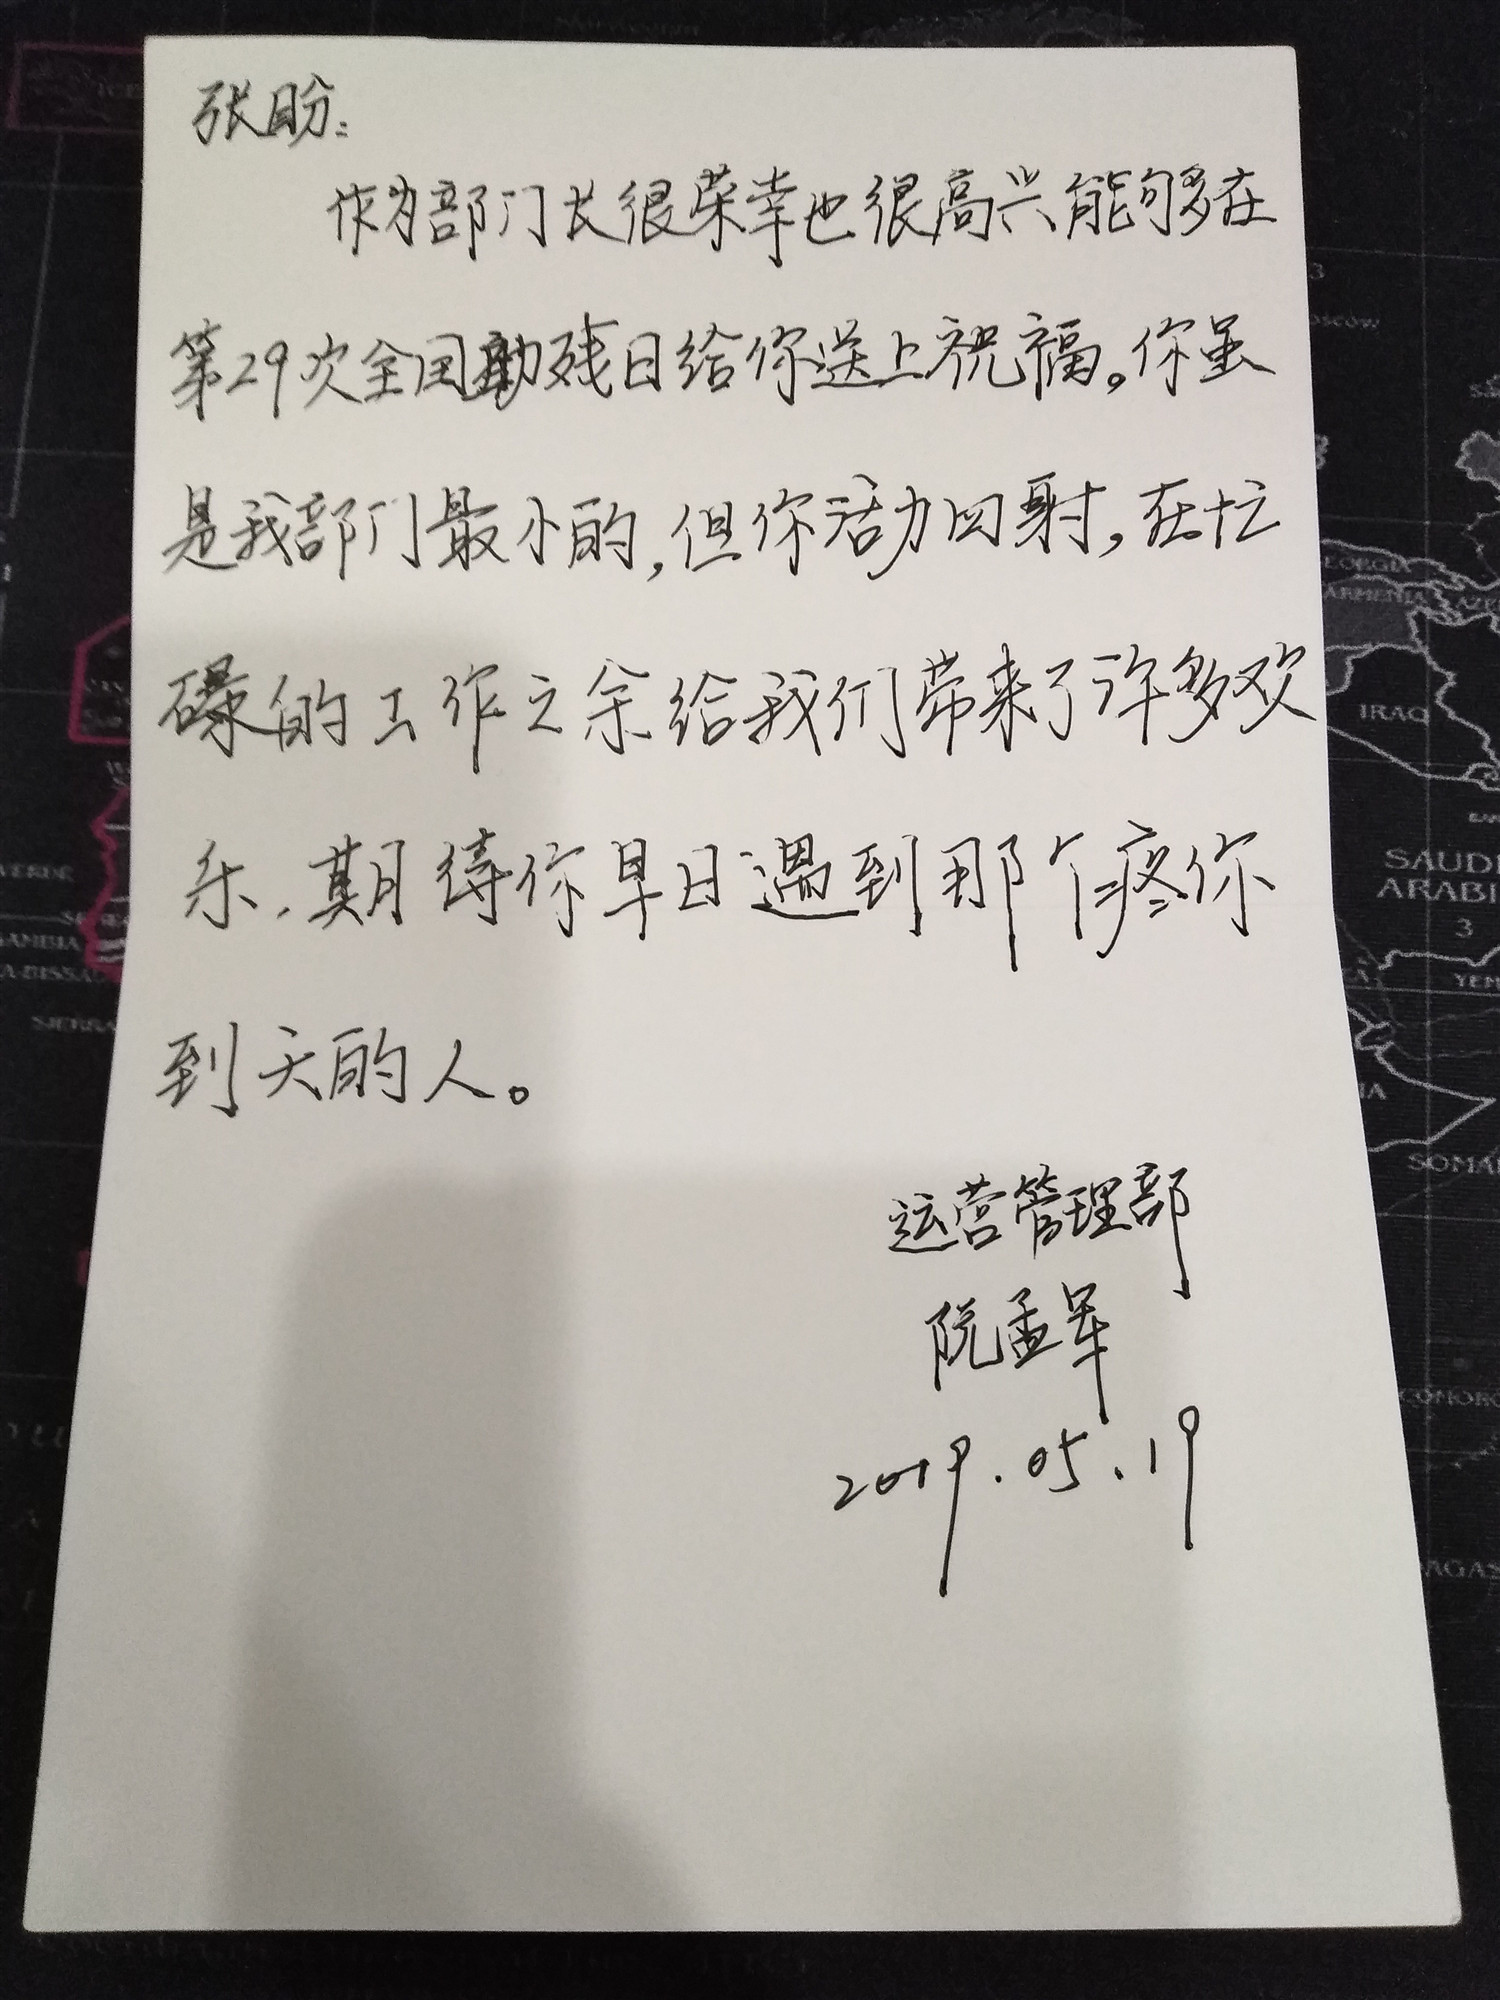 张盼：
作为部门长很荣幸也很高兴能够在
第29次全国助残日给你送上祝福。你虽
是我部门最小的，但你活力四射，在忙
碌的工作之余给我们带来了许多欢
乐，期待你早日遇到那个疼你
到天的人。
运营管理部
阮孟军
2019.05.19
IRAQ
SAUDI
ARABI
3
GEORGIA
ARMENIA
YEM
SOMA
COMORO
GAMBIA
VERDE
SIERRA